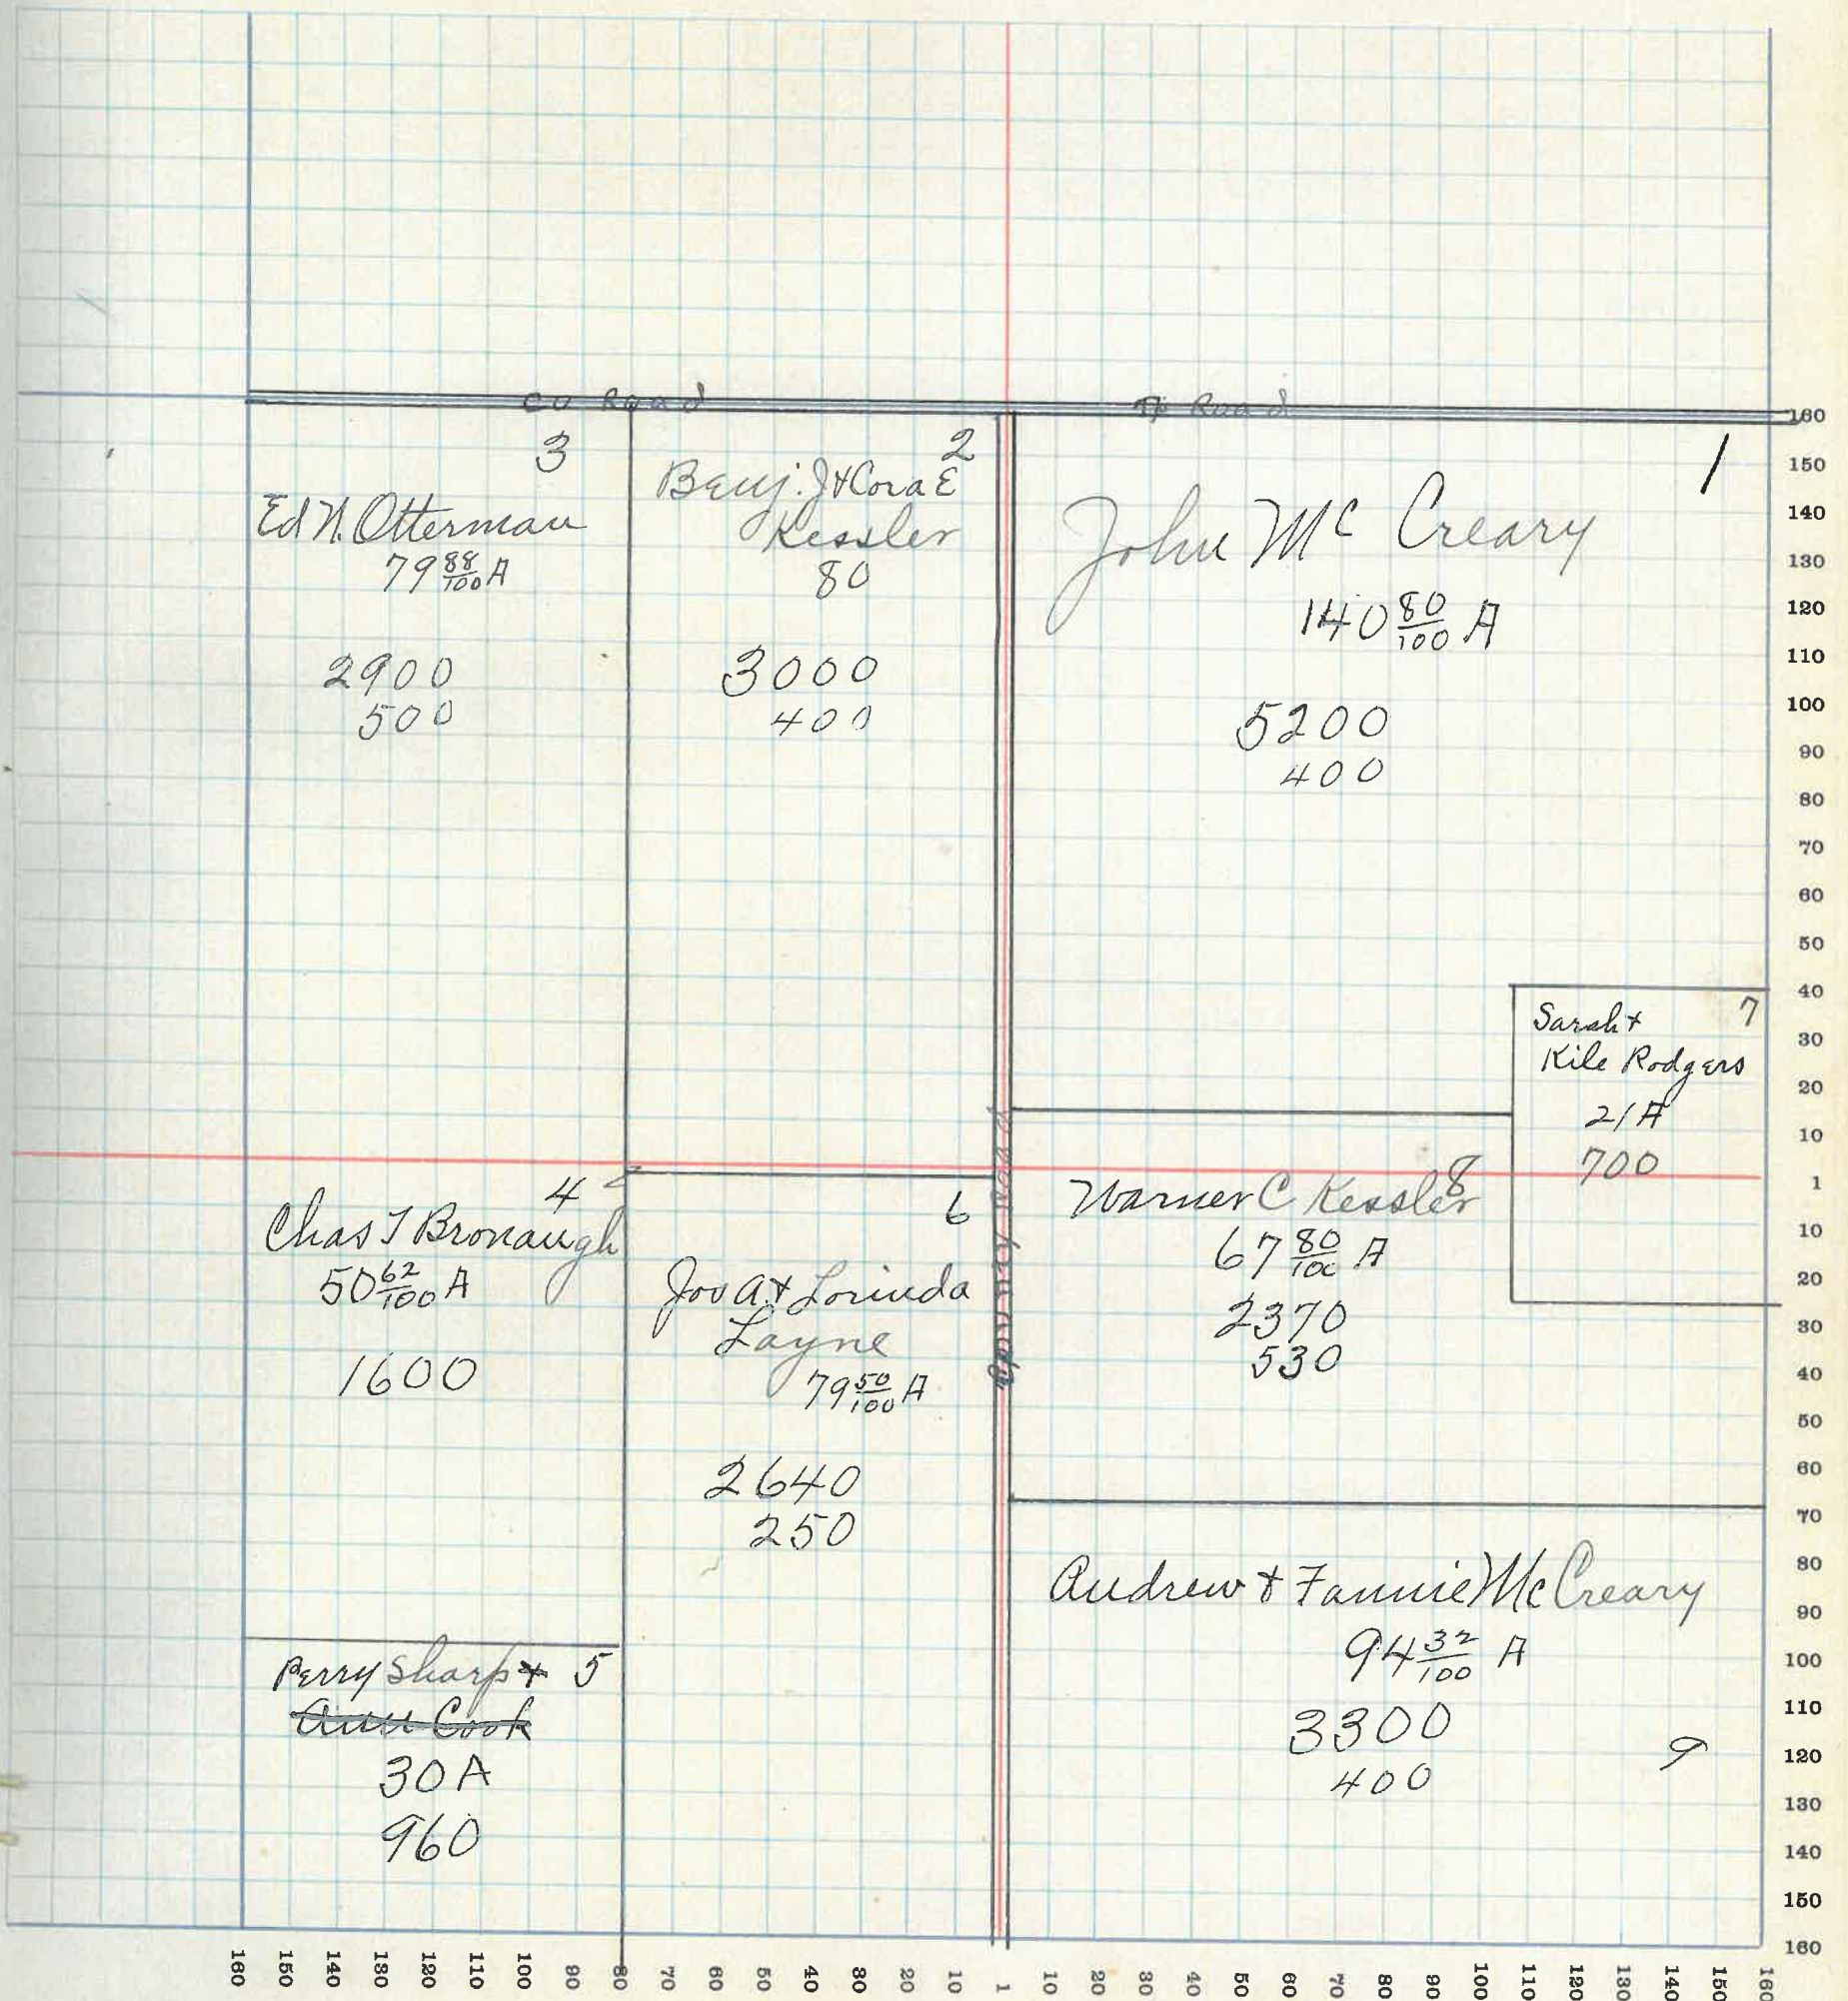 Co Road
Tp Road
3
Ed N. Otterman
79 88/100 A
2900
500
2
Benj. J + Cora E
Kessler
80
3000
400
1
John Mc Creary
140 80/100 A
5200
400
7
Sarah +
Kile Rodgers
21 A
700
4
Chas T Bronaugh
50 62/100 A
1600
6
Jos A. + Lorinda
Layne
79 50/100 A
2640
250
Road
8
Warner C Kessler
67 80/100 A
2370
530
Perry Sharp + 5
Ann Cook
30 A
960
Andrew + Fannie McCreary
94 32/100 A
3300
400
9
160
150
140
130
120
110
100
90
80
70
60
50
40
30
20
10
1
10
20
30
40
50
60
70
80
90
100
110
120
130
140
150
160
160 150 140 130 120 110 100 90 80 70 60 50 40 30 20 10 1 10 20 30 40 50 60 70 80 90 100 110 120 130 140 150 160